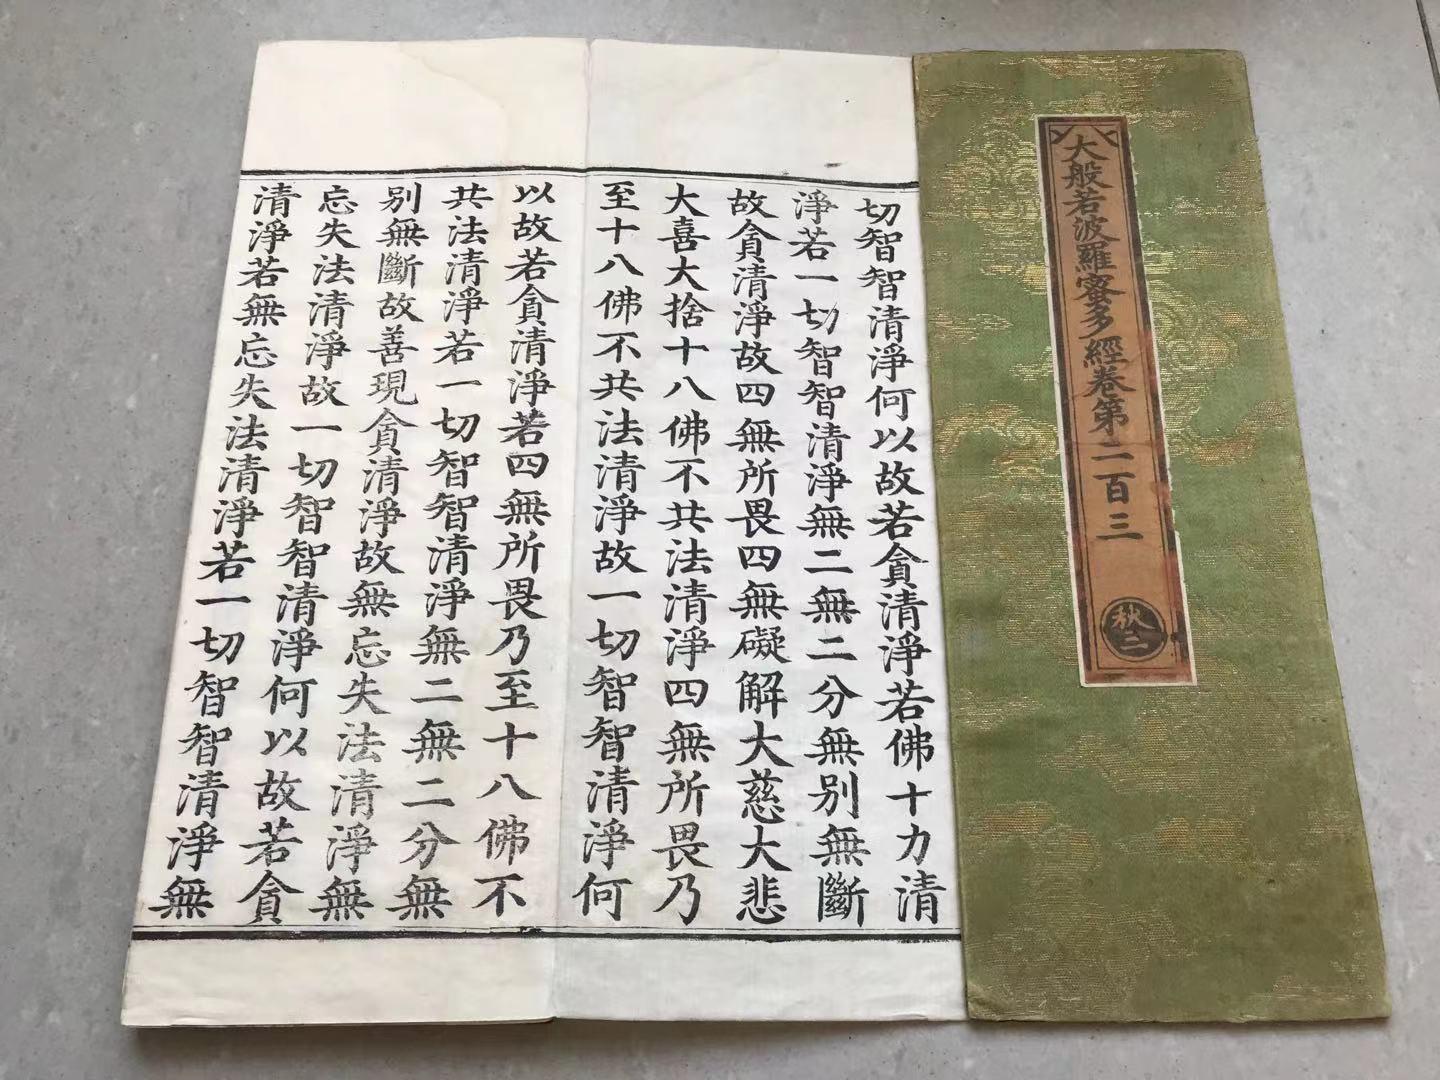 大般若波羅蜜多經卷第二百三
秋三
切智智清淨何以故若貪清淨若佛十力清
淨若一切智智清淨無二無二分無別無斷
故貪清淨故四無所畏四無礙解大慈大悲
大喜大捨十八佛不共法清淨四無所畏乃
至十八佛不共法清淨故一切智智清淨何
以故若貪清淨若四無所畏乃至十八佛不
共法清淨若一切智智清淨無二無二分無
別無斷故善現貪清淨故無忘失法清淨無
忘失法清淨故一切智智清淨何以故若貪
清淨若無忘失法清淨若一切智智清淨無